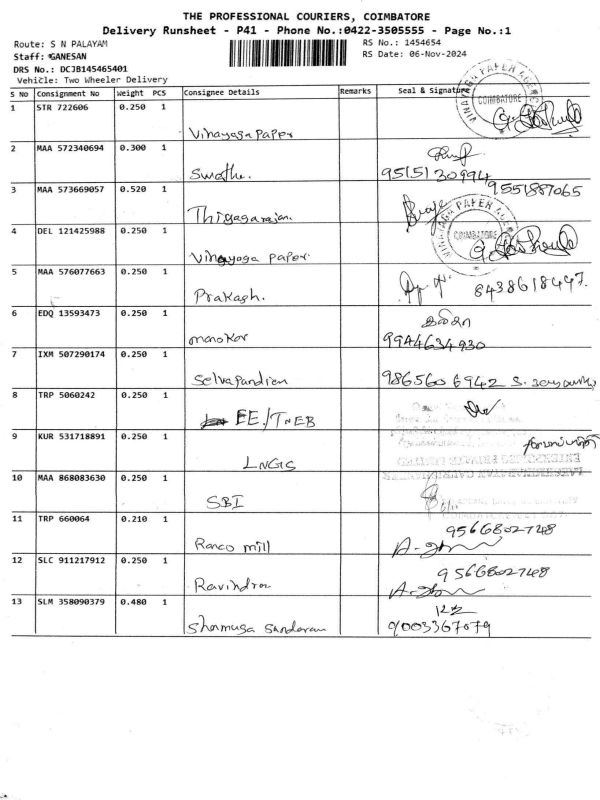 THE PROFESSIONAL COURIERS, COIMBATORE
Delivery Runsheet - P41 - Phone No.:0422-3505555 - Page No.:1
Route: S N PALAYAM
RS No.: 1454654
Staff: GANESAN
RS Date: 06-Nov-2024
DRS No.: DCJB145465401
Vehicle: Two Wheeler Delivery
S No Consignment No Weight PCS Consignee Details Remarks Seal & Signature
1 STR 722606 0.250 1
Vinayaga Paper
VINAYAGA PAPER AGE
COIMBATORE
2 MAA 572340694 0.300 1
Swathi. 95151 30994
3 MAA 573669057 0.520 1
9551887065
Thigagarajan
4 DEL 121425988 0.250 1
Vinayoga Paper
VINAYAGA PAPER AGE
COIMBATORE
5 MAA 576077663 0.250 1
Prakash. 8438618497.
6 EDQ 13593473 0.250 1
manokar 9944634930
7 IXM 507290174 0.250 1
Selvapandien 986560 6942
8 TRP 5060242 0.250 1
EE/TNEB
9 KUR 531718891 0.250 1
LNGS
10 MAA 868083630 0.250 1
SBI
11 TRP 660064 0.210 1
9566802748
Ranco mill
12 SLC 911217912 0.250 1
9566802748
Ravindran
13 SLM 358090379 0.480 1
Shanmuga Sundaram 9003367079